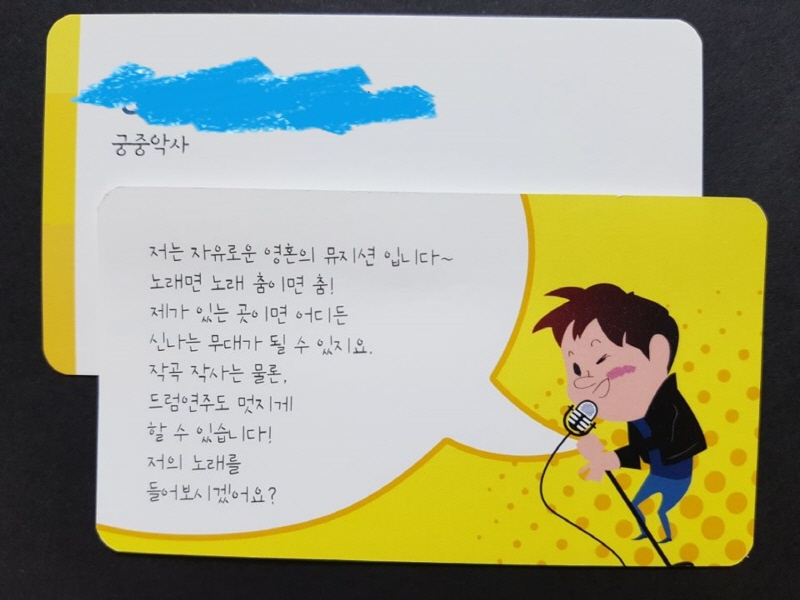 궁중악사
저는 자유로운 영혼의 뮤지션 입니다~
노래면 노래 춤이면 춤!
제가 있는 곳이면 어디든
신나는 무대가 될 수 있지요.
작곡 작사는 물론,
드럼연주도 멋지게
할 수 있습니다!
저의 노래를
들어보시겠어요?